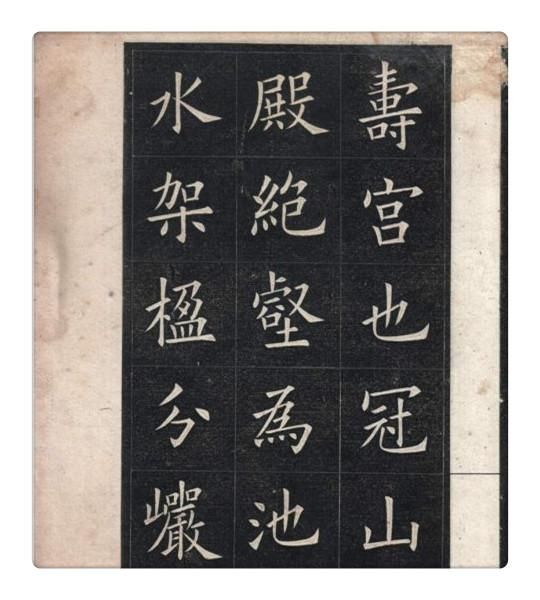 壽宫也冠山
殿絶壑為池
水架楹分巗